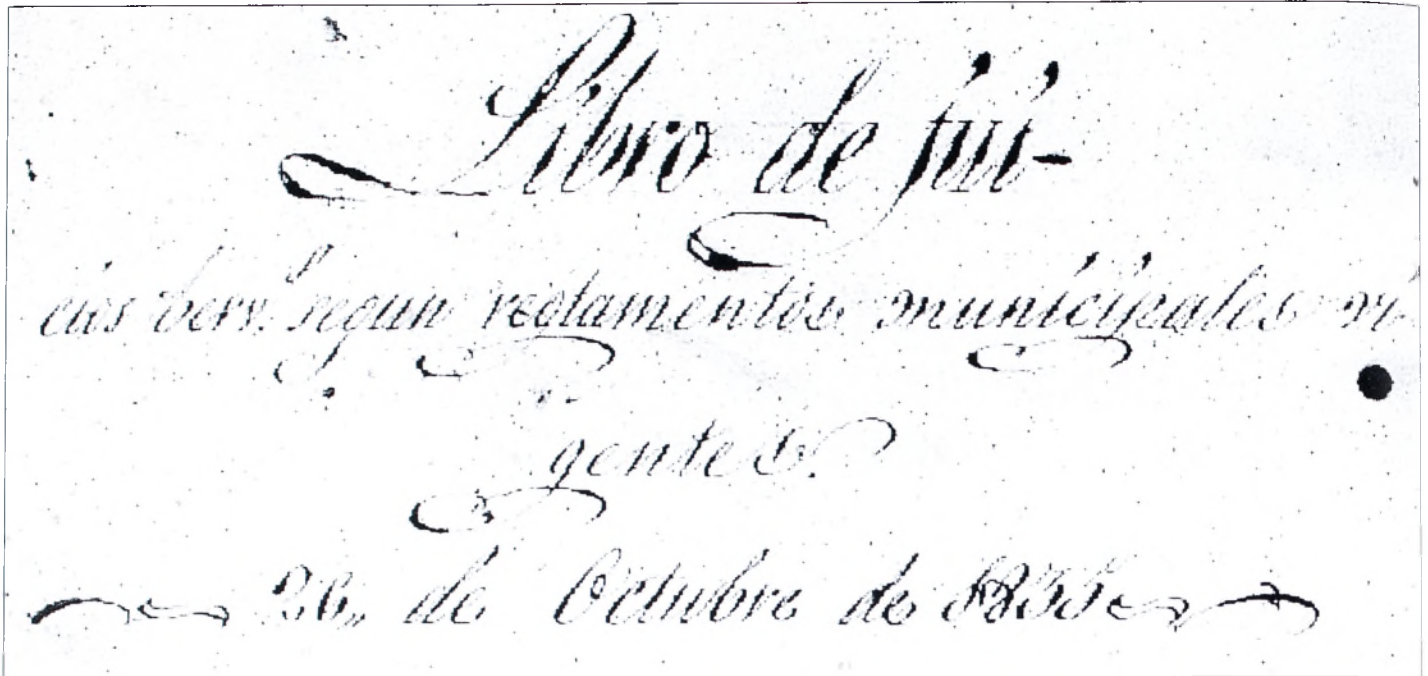 Libro de jui-
cios verv.s segun reglamentos municipales vi
gentes.
26,, de Octubre de 1835